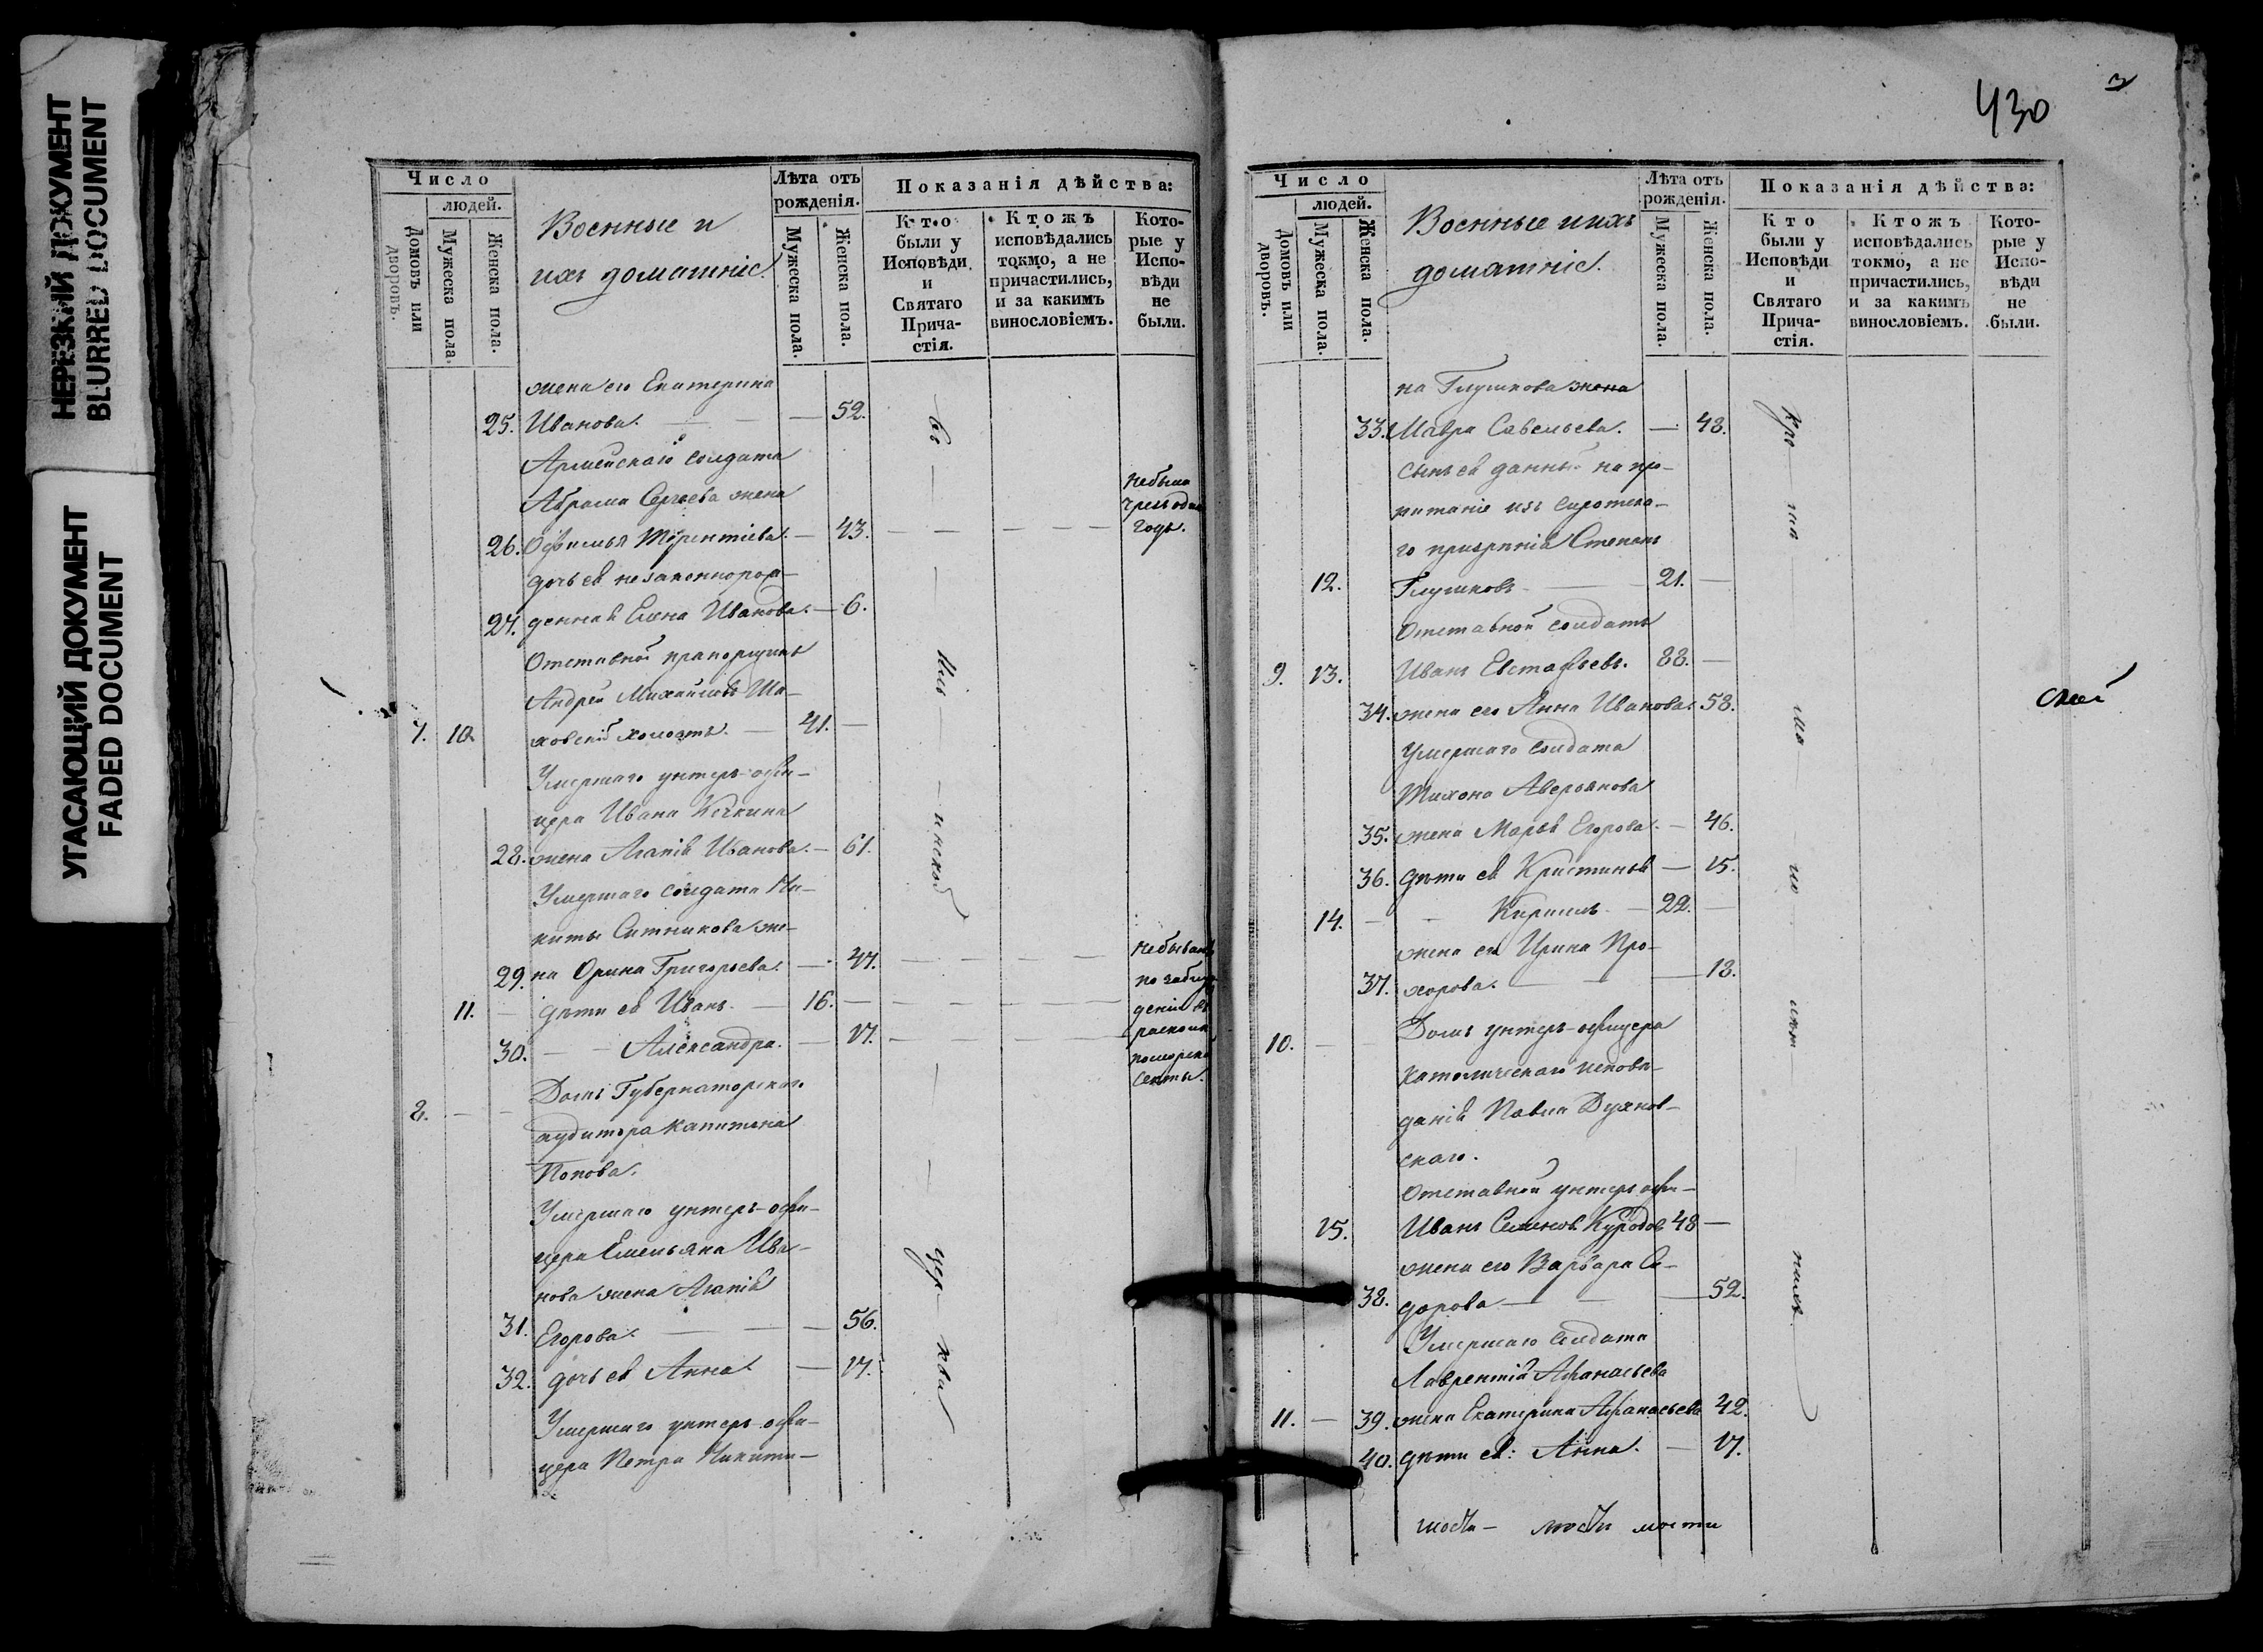 НЕРЕЗКИЙ ДОКУМЕНТ
BLURRED DOCUMENT
УГАСАЮЩИЙ ДОКУМЕНТ
FADED DOCUMENT
Число
людей.
Домовъ или дворовъ.
Мужеска пола.
Женска пола.
Военные и
ихъ домашніе.
Лѣта отъ рожденія.
Мужеска пола.
Женска пола.
Показанія дѣйства:
Кто были у Исповѣди и Святаго Прича-стія.
Ктожъ исповѣдались токмо, а не причастились, и за какимъ винословіемъ.
Кото-рые у Испо-вѣди не были.
жена его Екатерина
25. Иванова. — — 52.
Армейскаго солдата
Абрама Сергѣева жена
26. Офимья Терентіева. — 43. — — — —
небыла
чрезъ одинъ
годъ.
дочь ея незаконнорож-
27. денная Елена Иванова. — 6.
Отставной прапорщикъ
Андрей Михайловъ Ша-
7. 10. ховскій холостъ. — 41. —
Умершаго унтеръ-офи-
цера Ивана Кечкина
28. жена Агапія Иванова. — 61.
Умершаго солдата Ни-
киты Ситникова же-
29. на Орина Григорьева. — 47. — — — —
11. — дѣти ея Иванъ. — 16. — — — — —
30. — — Александра. — 17. — — — —
небываютъ
по заблуж
денію въ
расколѣ
поморской
секты.
8. — — Домъ Губернаторскаго
аудитора капитана
Попова.
Умершаго унтеръ-офи-
цера Емельяна Ива-
нова жена Агапія
31. Егорова. — — — 56.
32. дочь ея Анна. — 17.
Умершаго унтеръ-офи-
цера Петра Никити-
во — ин — ской
цер — ква
430
Число
людей.
Домовъ или дворовъ.
Мужеска пола.
Женска пола.
Военные и ихъ
домашніе.
Лѣта отъ рожденія.
Мужеска пола.
Женска пола.
Показанія дѣйства:
Кто были у Исповѣди и Святаго Прича-стія.
Ктожъ исповѣдались токмо, а не причастились, и за какимъ винословіемъ.
Кото-рые у Испо-вѣди не были.
на Глушкова жена
33. Мавра Савельева. — 48.
сынъ ея данный на про-
питаніе изъ сиротска-
го призрѣнія Степанъ
12. Глушковъ — 21. —
Отставной солдатъ
9. 13. Иванъ Евстафьевъ. 88. —
34. жена его Анна Иванова. 58.
Умершаго солдата
Тихона Аверьянова
35. жена Марья Егорова. — 46.
36. дѣти ея Кристинья — 15.
14. — — Кирилъ — 22. —
жена его Ирина Про-
37. хорова. — — — 18.
10. — Домъ унтеръ-офицера
католическаго исповѣ-
данія Павла Духнов-
скаго.
Отставной унтеръ офи-
15. Иванъ Семеновъ 48 —
жена его Варвара Си-
38. дорова — — — 52.
Умершаго солдата
Лаврентія Афанасьева
11. — 39. жена Екатерина Афанасьева 42.
40. дѣти ея: Анна. — 17.